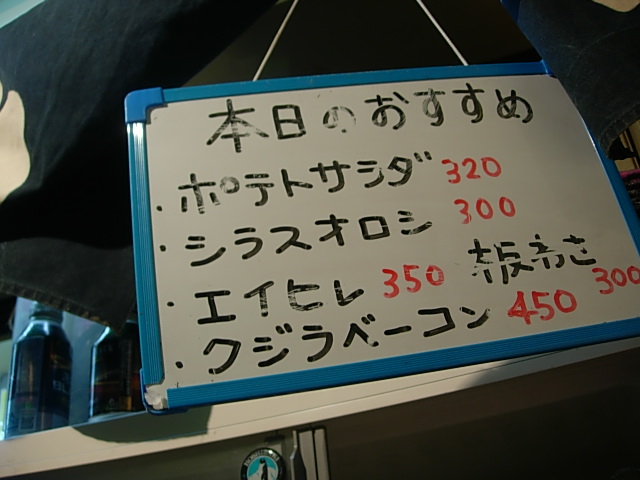 本日のおすすめ
・ポテトサラダ 320
・シラスオロシ 300
・エイヒレ 350 板わさ 300
・クジラベーコン 450